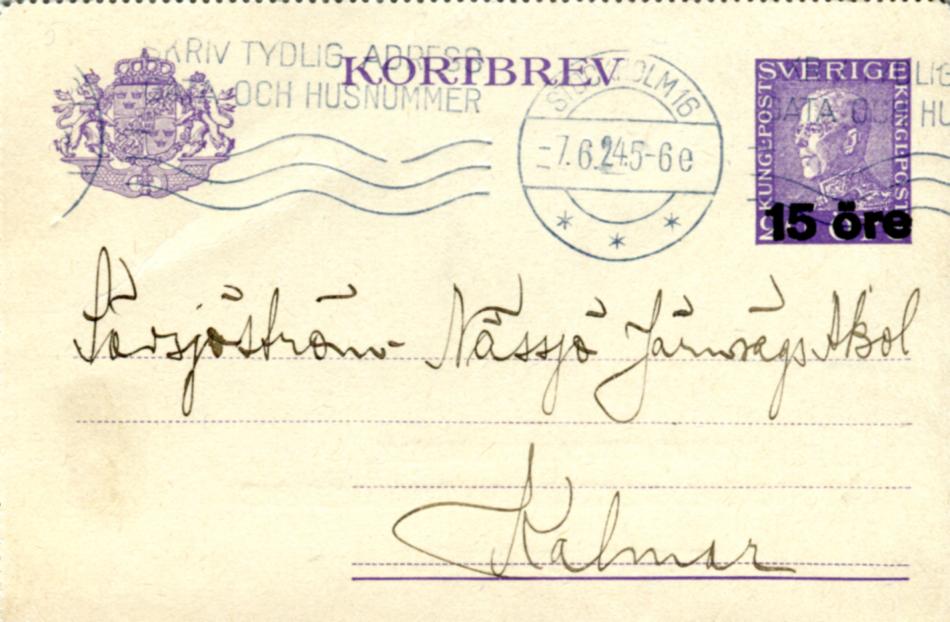 SKRIV TYDLIG ADRESS
GATA OCH HUSNUMMER
KORTBREV
STOCKHOLM 16
-7.6.24.5-6 e
SVERIGE
KUNGL·POST
KUNGL·POST
15 öre
Sävsjöström- Nässjö Järnvägs Akbol
Kalmar